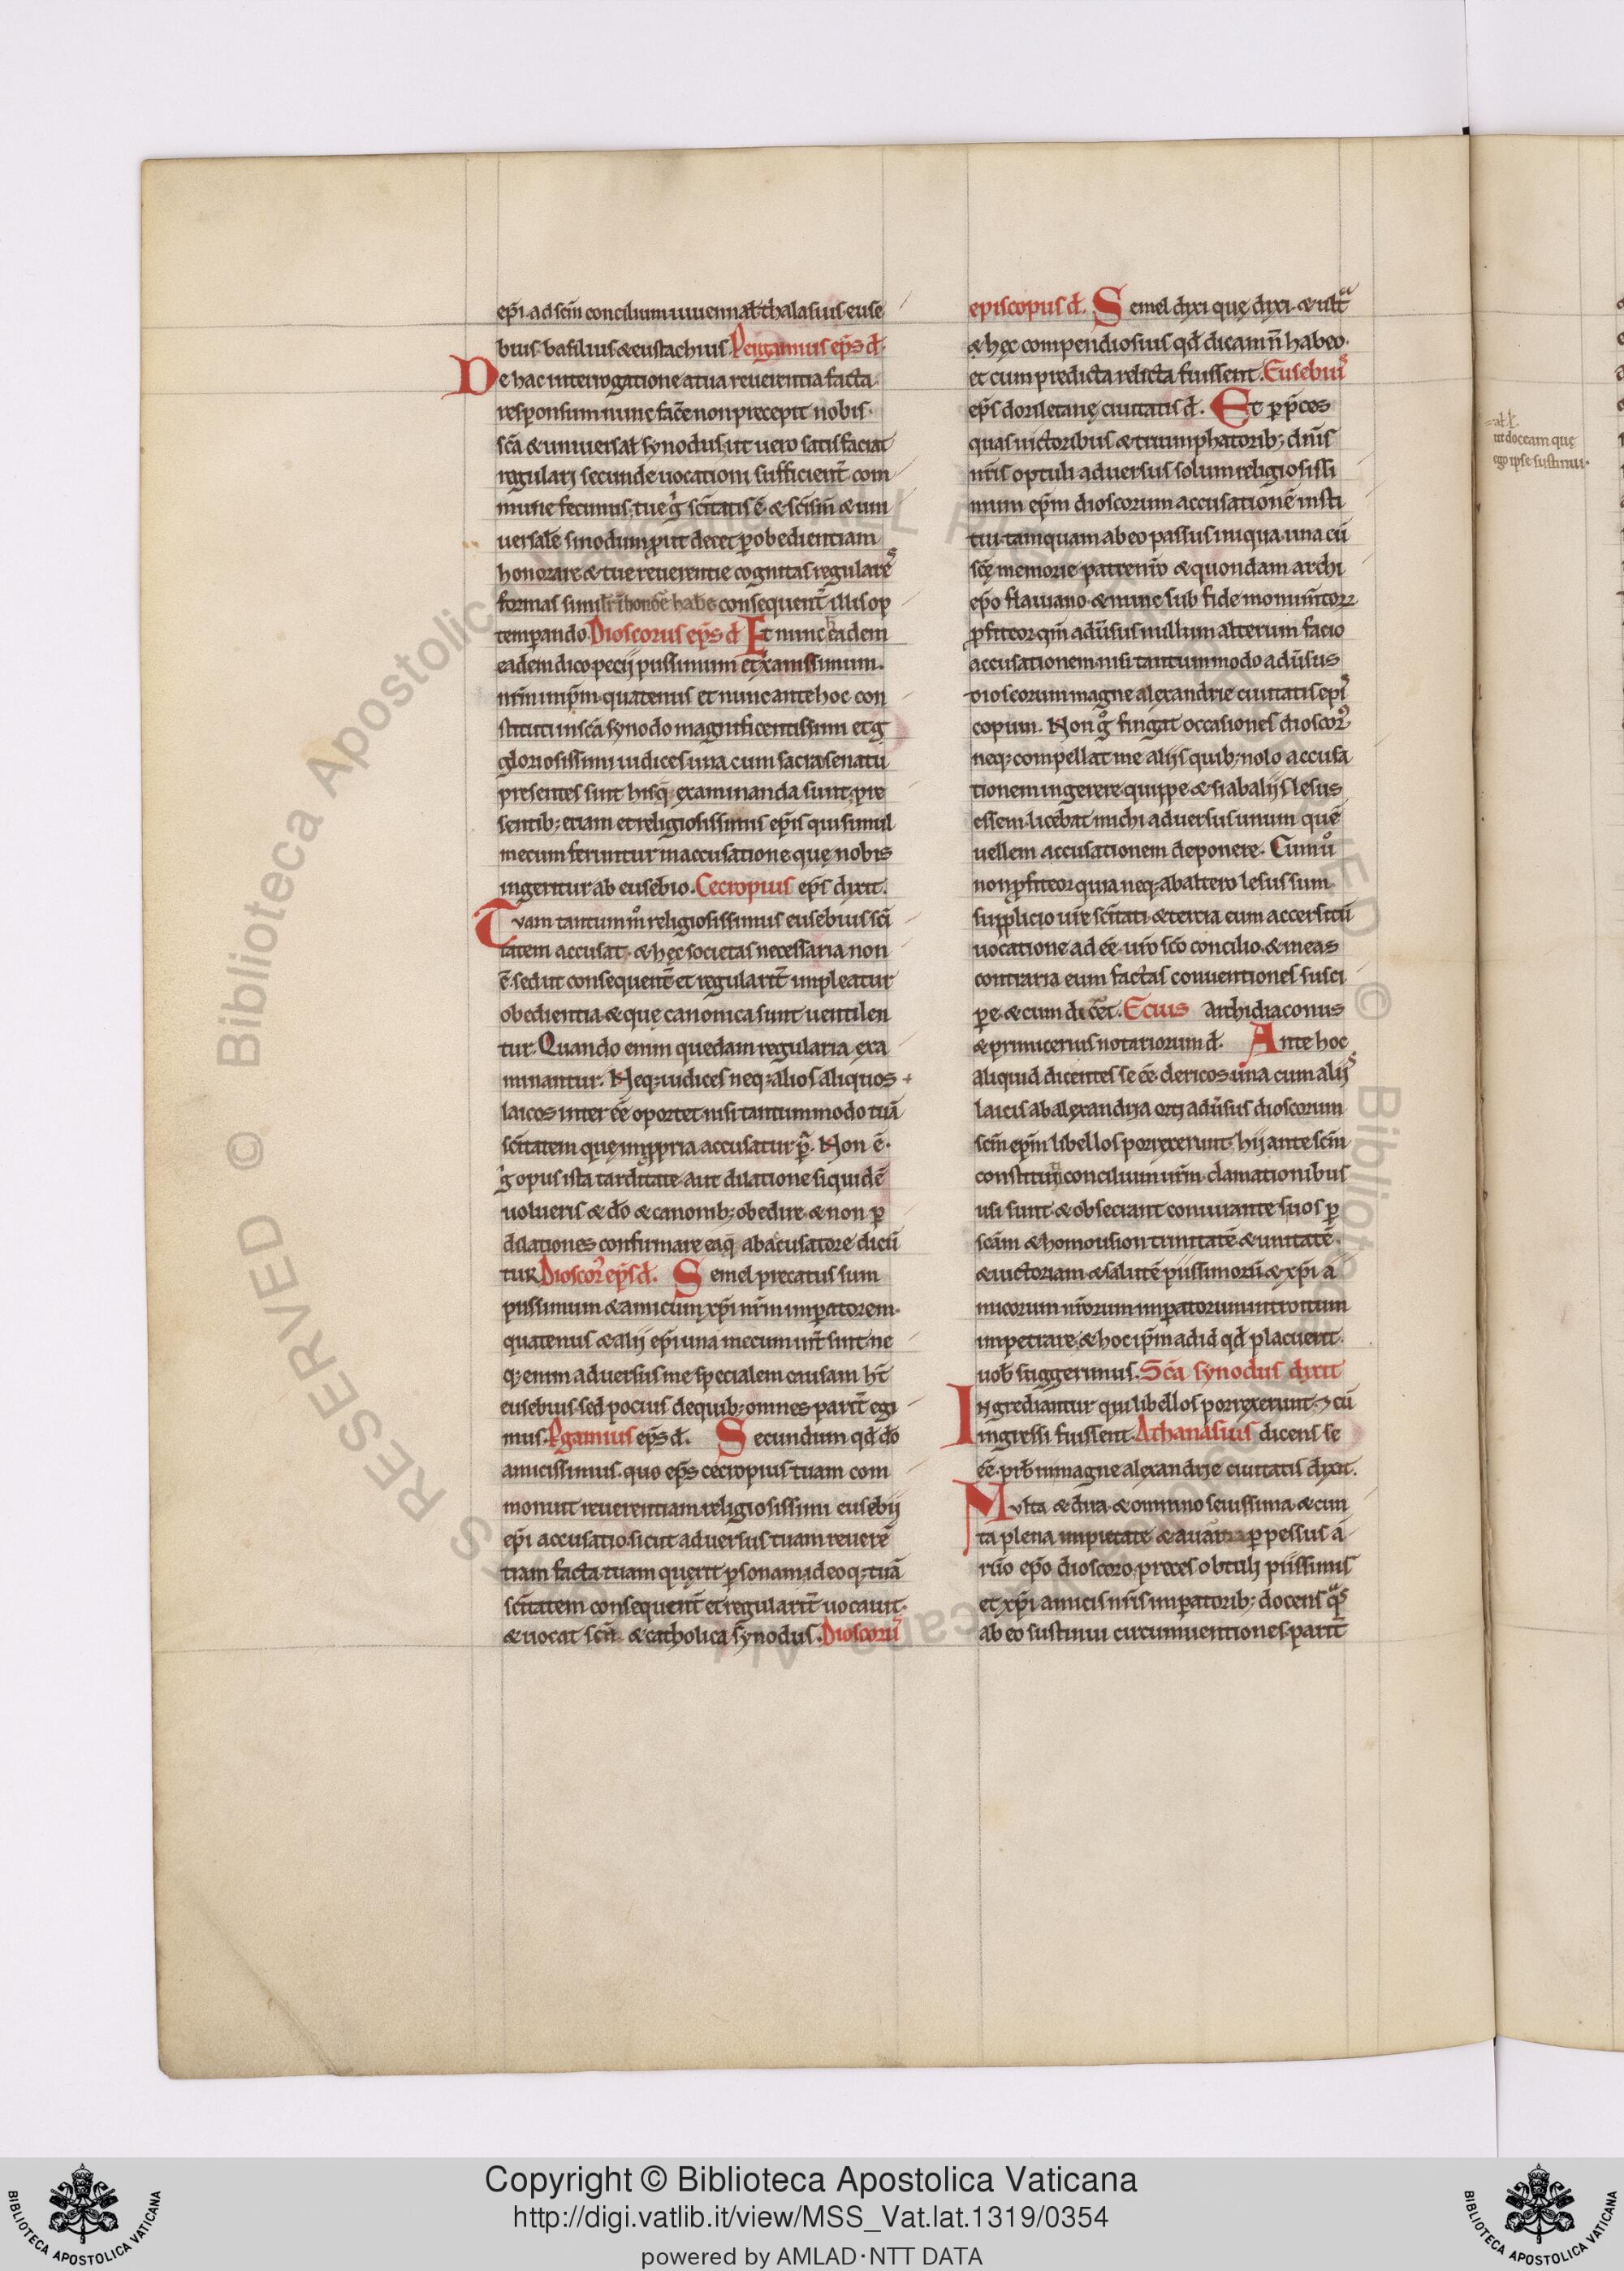 ep̄i. ad sc̄m concilium iuuennal̄. thalasius. euse
bius. basilius & eustachius. Pergamius ep̄s d̄.
De hac interrogatione a tua reuerentia facta.
responsum nunc fac̄e non precepit nobis.
sc̄a & uniuersal̄ synodus. ut uero satisfaciat
regulari secunde uocationi sufficient̄ com
mune fecimus. tue g̊ sc̄itatis ē. & sc̄is̄m & uni
uersalē sinodum prout decet p̱ obedientiam
honorare & tue reuerentie cognitas regulares
formas consequent̄ illis op
temp̱ando. Dioscorus ep̄s d̄ Et nunc eadem
eadem dico pecii piissimum et xp̄ianissimum.
nr̄m imp̄m. quatenus et nunc ante hoc con
stituti in sc̄a synodo magnificentissimi et g
gloriosissimi iudices una cum sacra senatu
presentes sint hisq̄ examinanda sunt. pre
sentib; etiam et religiosissimis ep̄is qui simul
mecum feriuntur in accusatione que nobis
ingeritur ab eusebio. Cecropius ep̄s dixit.
Tuam tantum m̊ religiosissimus eusebius sc̄i
tatem accusat. & hec societas necessaria non
ē. sed ut consequent̄ et regularit̄ impleatur
obedientia & que canonica sunt uentilen
tur. Quando enim quedam regularia exa
minantur. Neq; iudices neq; alios aliquos
laicos inter eē oportet nisi tantummodo tuā
sc̄itatem que in p̱pria accusatur p̱. Non ē.
g̊ opus ista tarditate. aut dilatione siquidē
uolueris & dō & canonib; obedire. & non p̱
dilationes confirmare eaq̄ ab acusatore dicū
tur Dioscor ep̄s d̄. Semel precatus sum
piissimum & amicum xp̄i nr̄m imp̱atorem.
quatenus & alii ep̄i una mecum int̄ sint. ne
q; enim aduersus me specialem causam ht̄
eusebius. sed pocius de quib; omnes parit̄ egi
mus. Pgamius ep̄s d̄. Secundum qd̄ dō
amicissimus. quo ep̄s cecropius tuam com
monuit reuerentiam religiosissimi eusebii
ep̄i accusatio. sicut aduersus tuam reuerē
tiam facta. tuam querit p̱sonam. ideoq; tuā
sc̄itatem consequent̄ et regularit̄ uocauit.
& uocat & catholica synodus. Dioscorus
episcopus d̄. Semel dixi que dixi. & ult̄a
& hec compendiosius qd̄ dicam n̄ habeo.
et cum predicta relicta fuissent. Eusebius
ep̄s dorsletane ciuitatis d̄. Et p̱ p̄ces
quas uictoribus & triumphatorib; dn̄is
nr̄is optuli aduersus solum religiosissi
mum ep̄m dioscorum accusationē insti
tui. tamquam ab eo passus iniqua. una cū
sc̄e memorie patre nr̄o & quondam archi
ep̄o flauiano. & nunc sub fide monimtoꝝ
p̱fiteor qm̄ adu̇sus nullum alterum facio
accusationem. nisi tantummodo adu̇sus
dioscorum magne alexandrie ciuitatis epis
copum. Non g̊ fingat occasiones dioscorus
neq; compellat me aliis quib; nolo accusa
tionem ingerere. quippe & si ab aliis lesus
essem. licebat michi aduersus unum quē
uellem accusationem deponere. Cum ů
non p̱fiteor quia neq; ab altero lesus sum.
supplicio ur̄e sc̄itati. & tercia cum accersitū
uocatione ad eē. ur̄o sc̄o concilio. & meas
contraria eum factas conuentiones susci
p̱e. & cum dic̄et. Ecius archidiaconus
& primicerius notariorum d̄. Ante hoc
aliquid dicentes se eē clericos. una cum aliis
laicis ab alexandria orti adu̇sus dioscorum
sc̄m ep̄m libellos porrexerunt. hii ante sc̄m
constitutū concilium ur̄m. clamationibus
usi sunt. & obsecrant coniuante suos p̱
sc̄am & homousion trinitatē & unitatē.
& uictoriam & salutē piissimorū & xp̄i a
micorum nr̄orum imp̱atorum introitum
impetrare. & hoc ip̄m ad id qd̄ placuerit.
uob̄ suggerimus. Sc̄a synodus dixit
Ingrediantur qui libellos porrexerunt. & cū
ingressi fuissent. Athanasius dicens se
eē. prb̄m magne alexandrie ciuitatis dixit.
Multa & dira. & omnino seuissima. & cun
ta plena impietate & p̱pessus a
ep̄o dioscoro. preces obtuli piissimis
et xp̄i amicis nr̄is imp̱atorib; docens
ab eo sustinui circumuentiones. parit̄
al̄.
ut doceam que
ego ipse sustinui.
Copyright © Biblioteca Apostolica Vaticana
http://digi.vatlib.it/view/MSS_Vat.lat.1319/0354
powered by AMLAD·NTT DATA
BIBLIOTECA APOSTOLICA VATICANA
BIBLIOTECA APOSTOLICA VATICANA